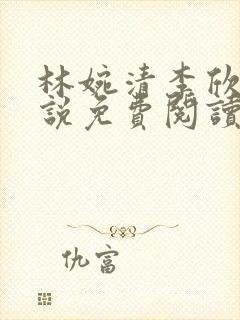 林婉清李欣
說免費閱讀
仇富